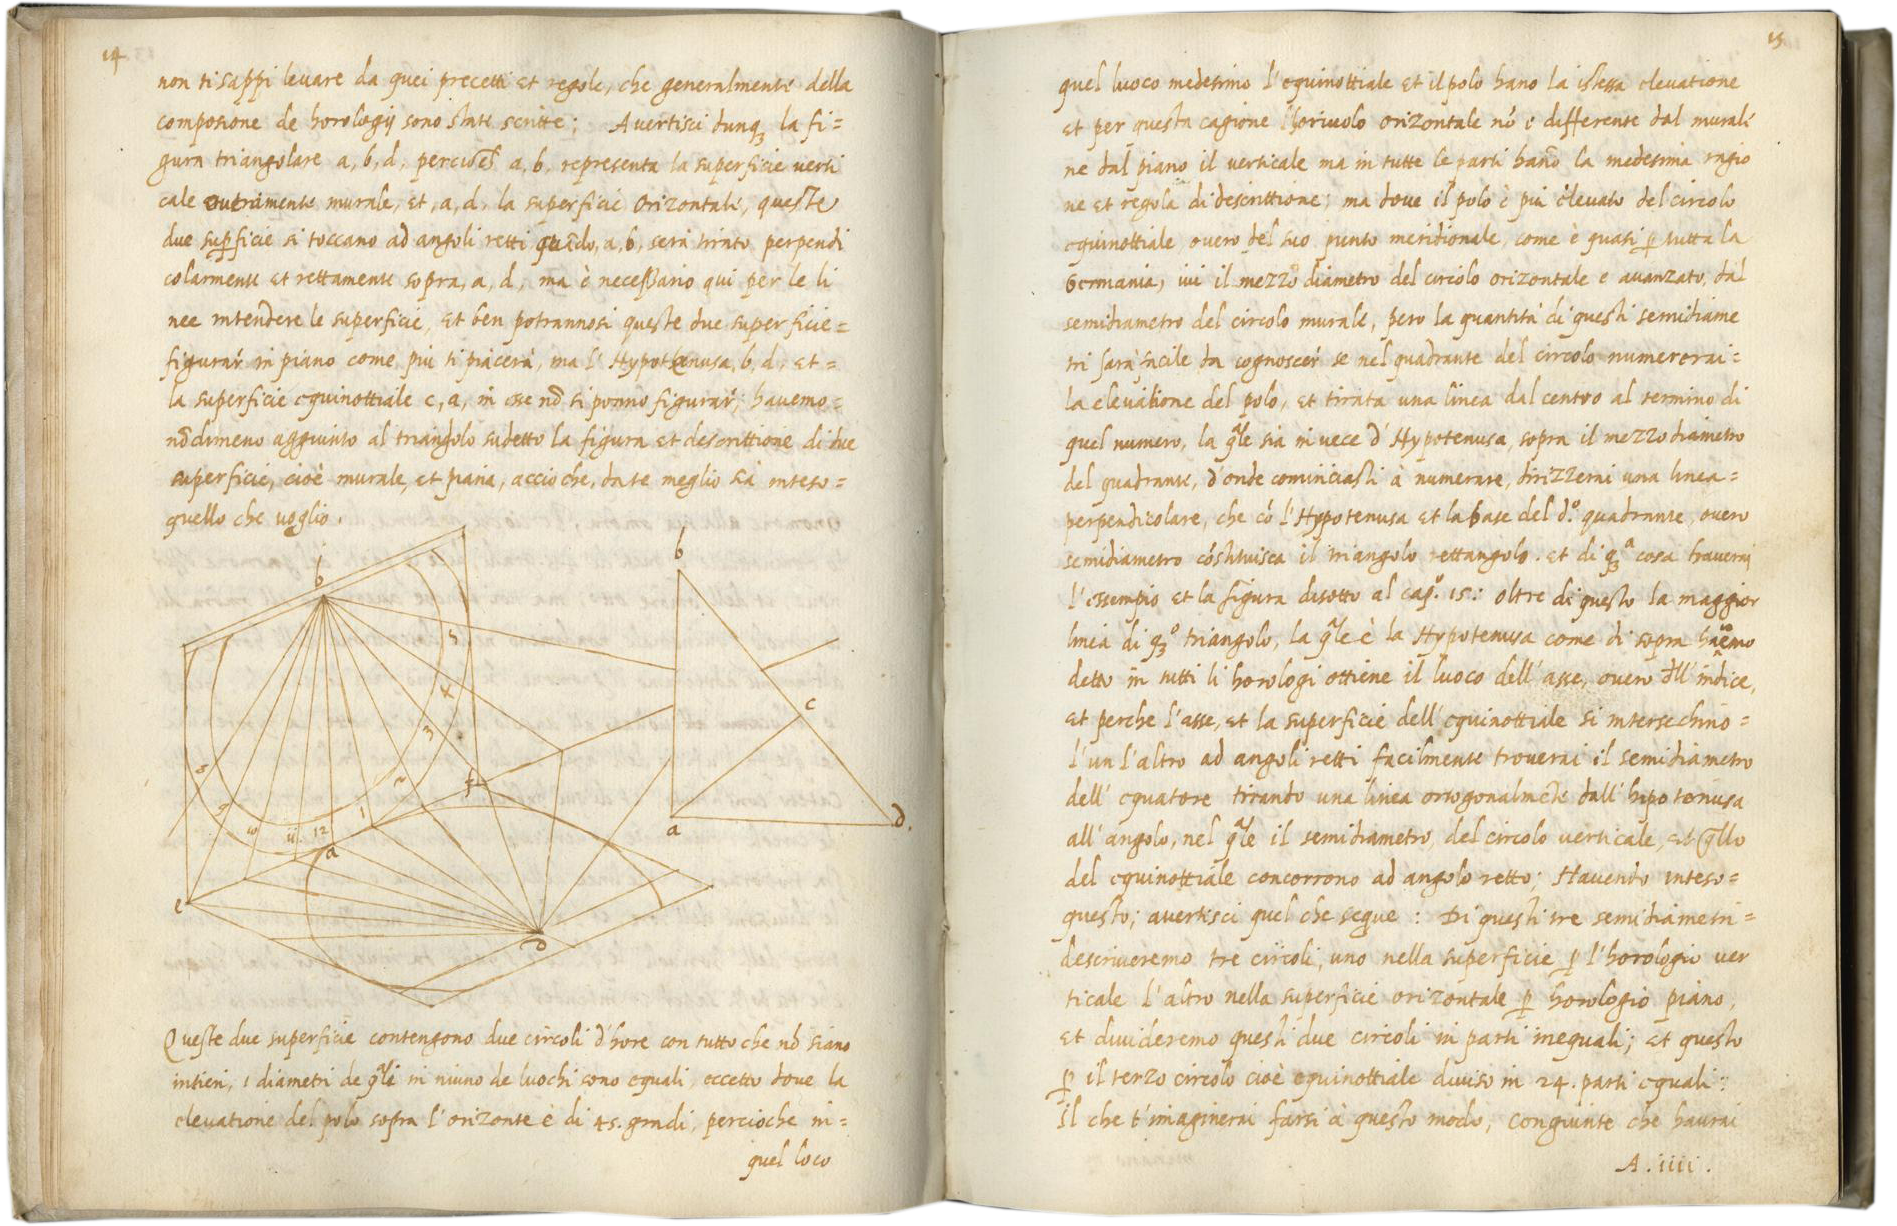 14
non ti sappi levare da quei precetti et regole, che generalmente della
composione de horologij sono state scritte; Avertisci dunq3 la fi=
gura triangolare a, b, d, a, b, representa la superficie verti
cale overamente murale, et, a, d, la superficie orizontale, queste
due superficie si toccano ad angoli retti quãdo, a, b, sera tirato perpendi
colarmente et rettamente sopra, a, d, ma è necessario qui per le li
nee intendere le superficie, et ben potrannosi queste due superficie=
figurar in piano come piu ti piacerà, ma l'Hypothenusa, b, d, et=
la superficie equinottiale c, a, in esse nõ si ponno figurar; havemo=
nõdimeno aggiunto al triangolo sudetto la figura et descrittione di due
superficie, cioè murale, et piana, accioche, da te meglio sia inteso=
quello che voglio.
b
b
5
4
3
c
f
2
8
9
10
11
12
1
a
a
d.
e
d
Queste due superficie contengono due circoli d'hore con tutto che nõ siano
intieri, i diametri de qli in niuno de luochi sono equali, eccetto dove la
elevatione del polo sopra l'orizonte è di 45. gradi, percioche in=
quel loco
15
quel luoco medesimo l'equinottiale et il polo hano la istessa elevatione
et per questa cagione l'horivolo orizontale nõ è differente dal murale
ne dal piano il verticale ma in tutte le parti hanõ la medesima ragio
ne et regola di descrittione; ma dove il polo è più elevato del circolo
equinottiale, overo del suo punto meridionale, come è quasi p tutta la
Germania, ivi il mezzo diametro del circolo orizontale e avanzato, dal
semidiametro del circolo murale, pero la quantità di questi semidiame
tri sarà facile da cognoscer se nel quadrante del circolo numererai=
la elevatione del polo, et tirata una linea dal centro al termino di
quel numero, la qle sia in vece d'Hypotenusa, sopra il mezzo diametro
del quadrante, d'onde cominciasti à numerare, dirizzerai una linea=
perpendicolare, che cõ l'Hypotenusa et la base del d.º quadrante, overo
semidiametro cõstituisca il triangolo rettangolo. et di q3ª cosa haverai
l'essempio et la figura disotto al cap.º 15: oltre di questo la maggior
linea di q3º triangolo, la qle è la Hypotenusa come di sopra havemo
detto in tutti li horologi ottiene il luoco dell'asse, overo dll'indice,
et perche l'asse, et la superficie dell'equinottiale si intersechino=
l'un l'altro ad angoli retti facilmente troverai il semidiametro
dell'equatore tirando una linea ortogonalmẽte dall'hipotenusa
all'angolo, nel qle il semidiametro del circolo verticale, et qllo
del equinottiale concorrono ad angolo retto; Havendo inteso=
questo; avertisci quel che segue: Di questi tre semidiametri=
descriveremo tre circoli, uno nella superficie p l'horologio ver
ticale l'altro nella superficie orizontale p horologio piano,
et divideremo questi due circoli in parti ineguali; et questo
p il terzo circolo cioè equinottiale diviso in 24. parti equali:
il che t'imaginerai farsi à questo modo, congiunte che haurai
A. iiii.